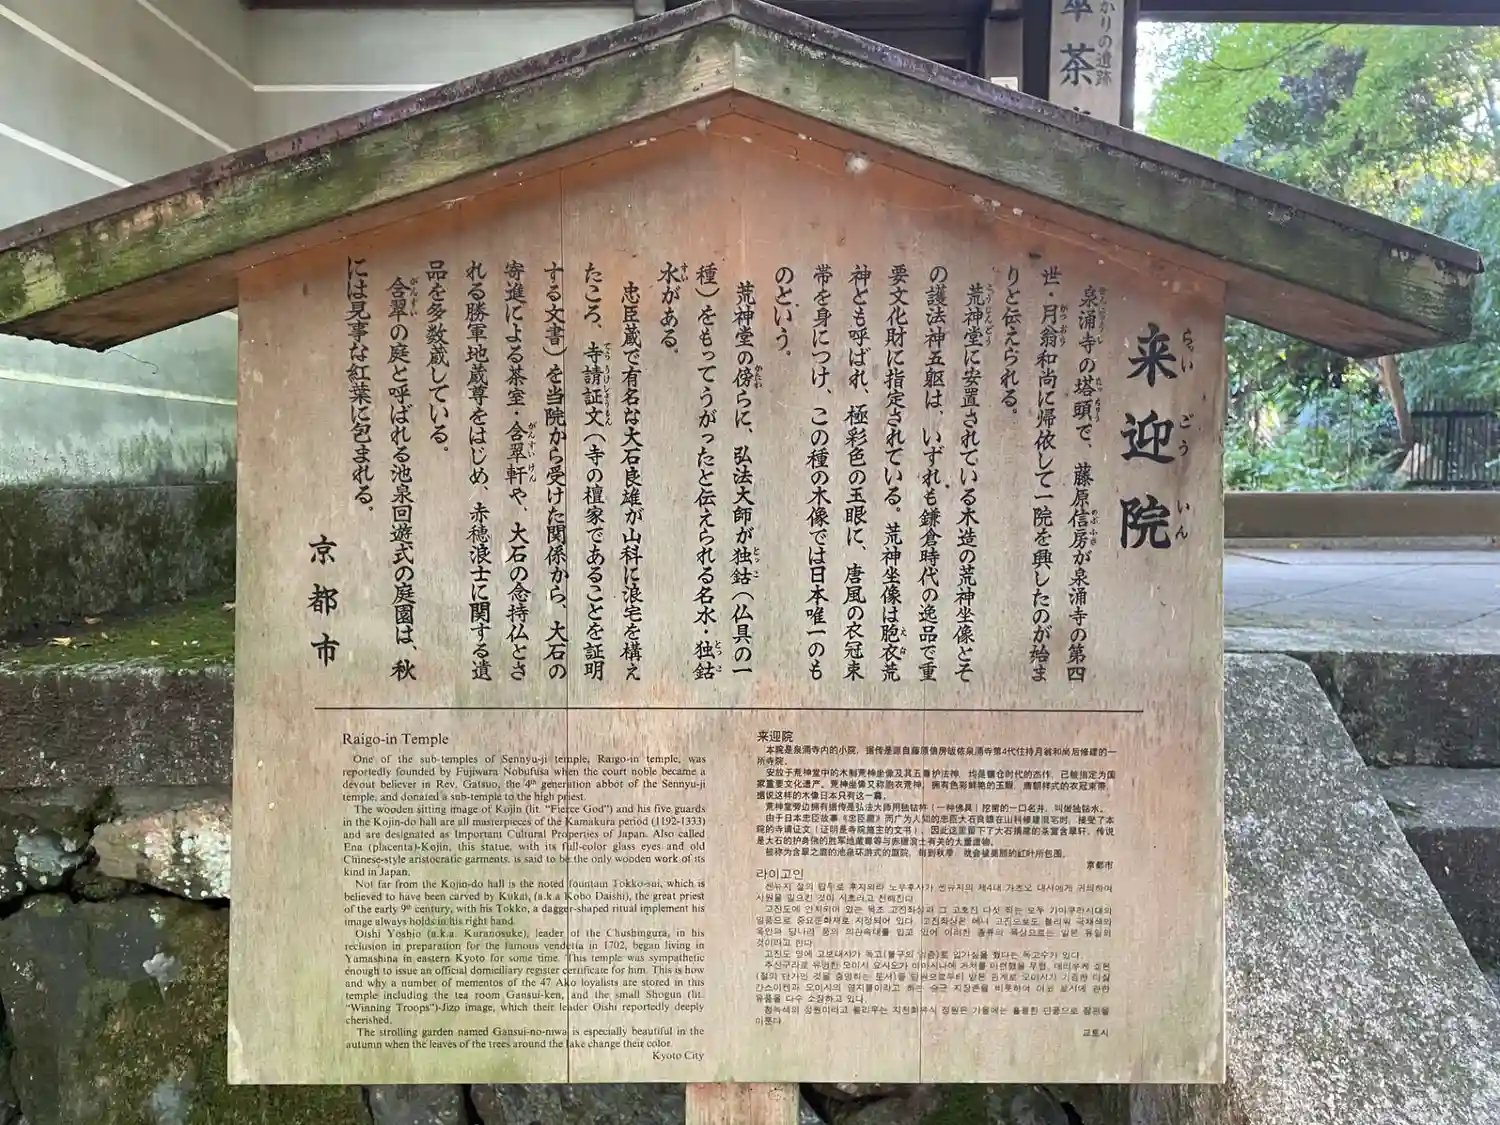 かりの遺跡
茶
来迎院
らいごういん
泉涌寺の塔頭で、藤原信房が泉涌寺の第四
世・月翁和尚に帰依して一院を興したのが始ま
りと伝えられる。
荒神堂に安置されている木造の荒神坐像とそ
の護法神五躯は、いずれも鎌倉時代の逸品で重
要文化財に指定されている。荒神坐像は胞衣荒
神とも呼ばれ、極彩色の玉眼に、唐風の衣冠束
帯を身につけ、この種の木像では日本唯一のも
のという。
荒神堂の傍らに、弘法大師が独鈷(仏具の一
種)をもってうがったと伝えられる名水・独鈷
水がある。
忠臣蔵で有名な大石良雄が山科に浪宅を構え
たころ、寺請証文(寺の檀家であることを証明
する文書)を当院から受けた関係から、大石の
寄進による茶室・含翠軒や、大石の念持仏とさ
れる勝軍地蔵尊をはじめ、赤穂浪士に関する遺
品を多数蔵している。
含翠の庭と呼ばれる池泉回遊式の庭園は、秋
には見事な紅葉に包まれる。
京都市
Raigo-in Temple
One of the sub-temples of Sennyu-ji temple, Raigo-in temple, was
reportedly founded by Fujiwara Nobufusa when the court noble became a
devout believer in Rev. Gatsuo, the 4th generation abbot of the Sennyu-ji
temple, and donated a sub-temple to the high priest.
The wooden sitting image of Kojin (lit. "Fierce God") and his five guards
in the Kojin-do hall are all masterpieces of the Kamakura period (1192-1333)
and are designated as Important Cultural Properties of Japan. Also called
Ena (placenta)-Kojin, this statue, with its full-color glass eyes and old
Chinese-style aristocratic garments, is said to be the only wooden work of its
kind in Japan.
Not far from the Kojin-do hall is the noted fountain Tokko-sui, which is
believed to have been carved by Kukai, (a.k.a Kobo Daishi), the great priest
of the early 9th century, with his Tokko, a dagger-shaped ritual implement his
image always holds in his right hand.
Oishi Yoshio (a.k.a. Kuranosuke), leader of the Chushingura, in his
reclusion in preparation for the famous vendetta in 1702, began living in
Yamashina in eastern Kyoto for some time. This temple was sympathetic
enough to issue an official domiciliary register certificate for him. This is how
and why a number of mementos of the 47 Ako loyalists are stored in this
temple including the tea room Gansui-ken, and the small Shogun (lit.
"Winning Troops")-Jizo image, which their leader Oishi reportedly deeply
cherished.
The strolling garden named Gansui-no-niwa is especially beautiful in the
autumn when the leaves of the trees around the lake change their color.
Kyoto City
来迎院
本院是泉涌寺内的小院，据传是源自藤原信房皈依泉涌寺第4代住持月翁和尚后修建的一
所寺院。
安放于荒神堂中的木制荒神坐像及其五尊护法神，均是镰仓时代的杰作，已被指定为国
家重要文化遗产。荒神坐像又称胞衣荒神，拥有色彩鲜艳的玉眼，唐朝样式的衣冠束带，
据说这样的木像日本只有这一尊。
荒神堂旁边拥有据传是弘法大师用独钴杵(一种佛具)挖凿的一口名井，叫做独钴水。
京都市
라이고인
교토시